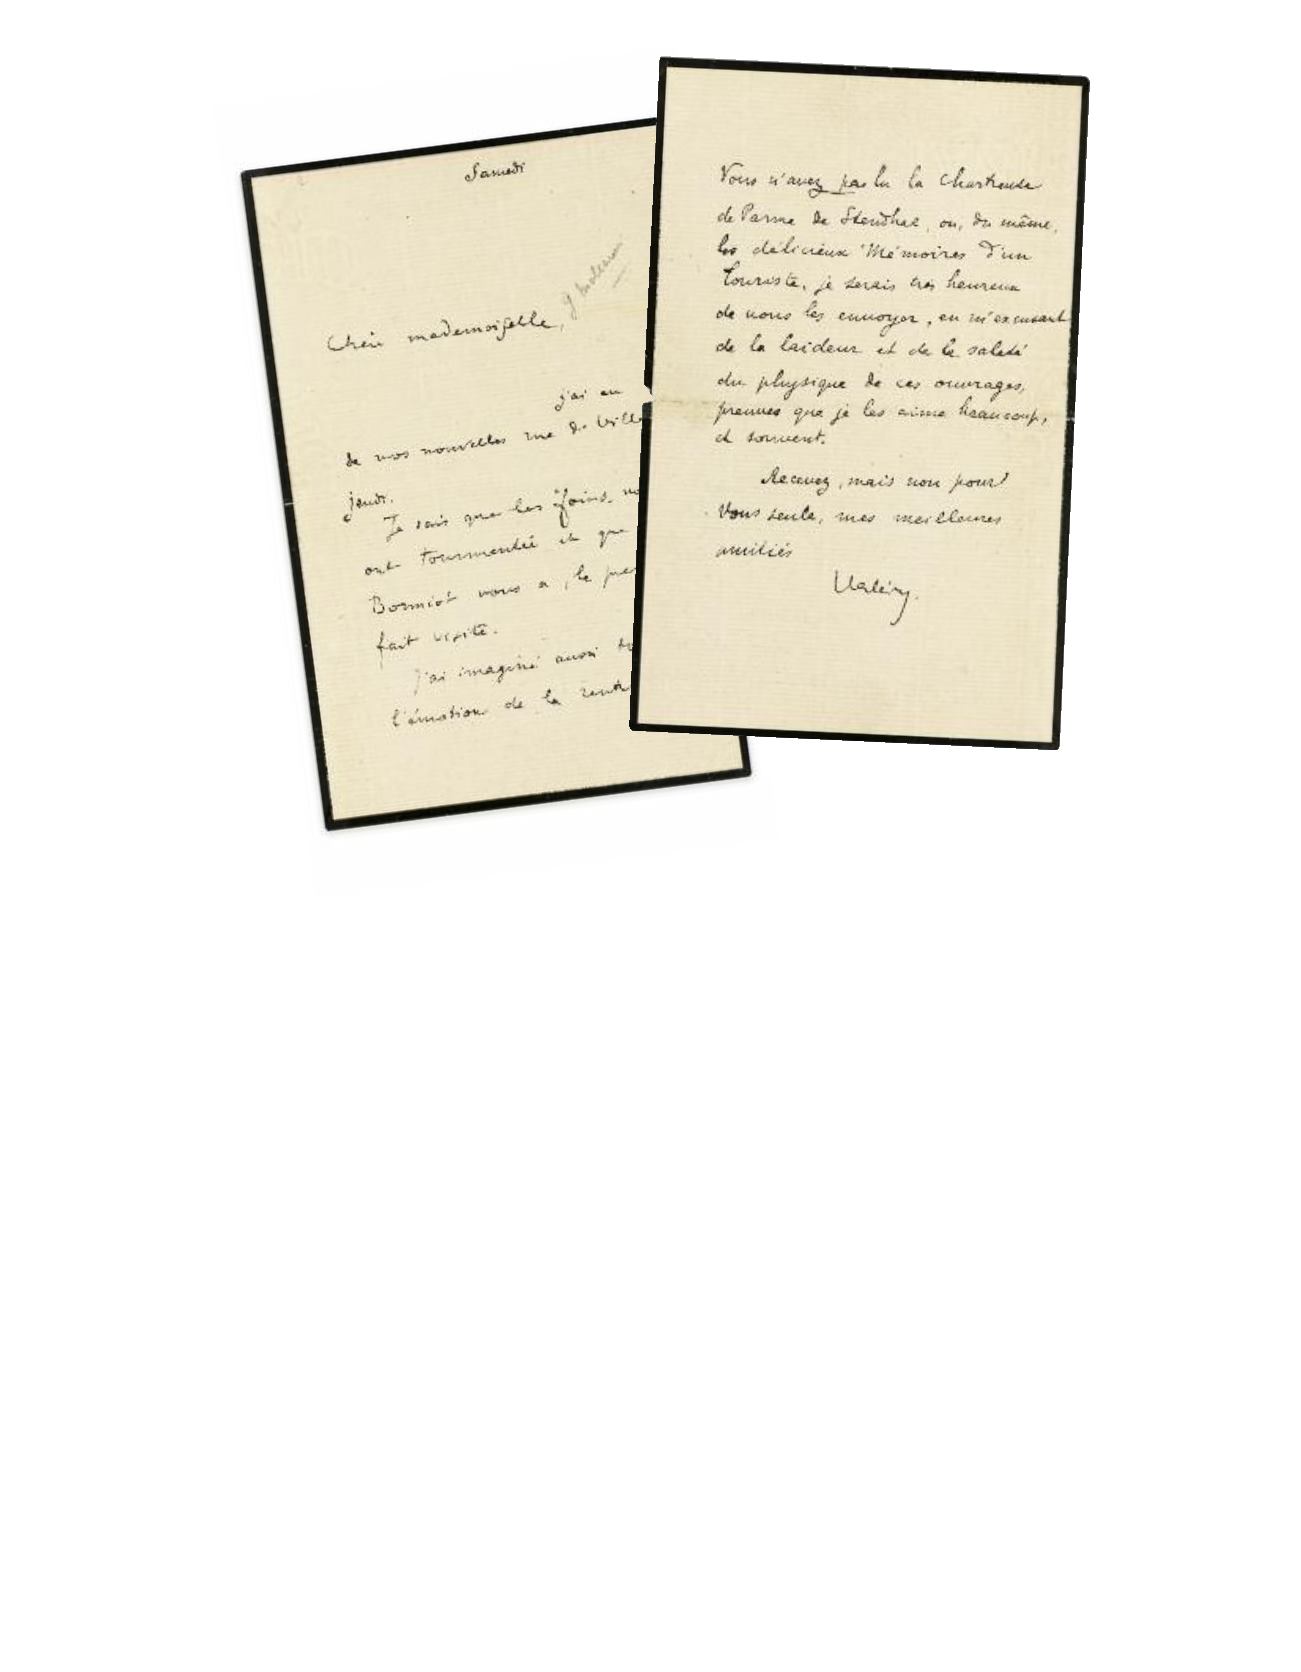 Samedi
Chère mademoiselle,
j'ai eu
de vos nouvelles rue de Ville
jeudi.
Je sais que les foins
ont tourmentée et que
vous a, le
fait visite.
J'ai imaginé aussi
l'émotion de la
Vous n'avez pas lu la Chartreuse
de Parme de Stendhal, ou, du même,
les délicieux Mémoires d'un
Touriste, je serais très heureux
de vous les envoyer, en m'excusant
de la laideur et de la saleté
du physique de ces ouvrages,
preuves que je les aime beaucoup,
et souvent.
Recevez, mais non pour
Vous seule, mes meilleures
amitiés
Valéry.